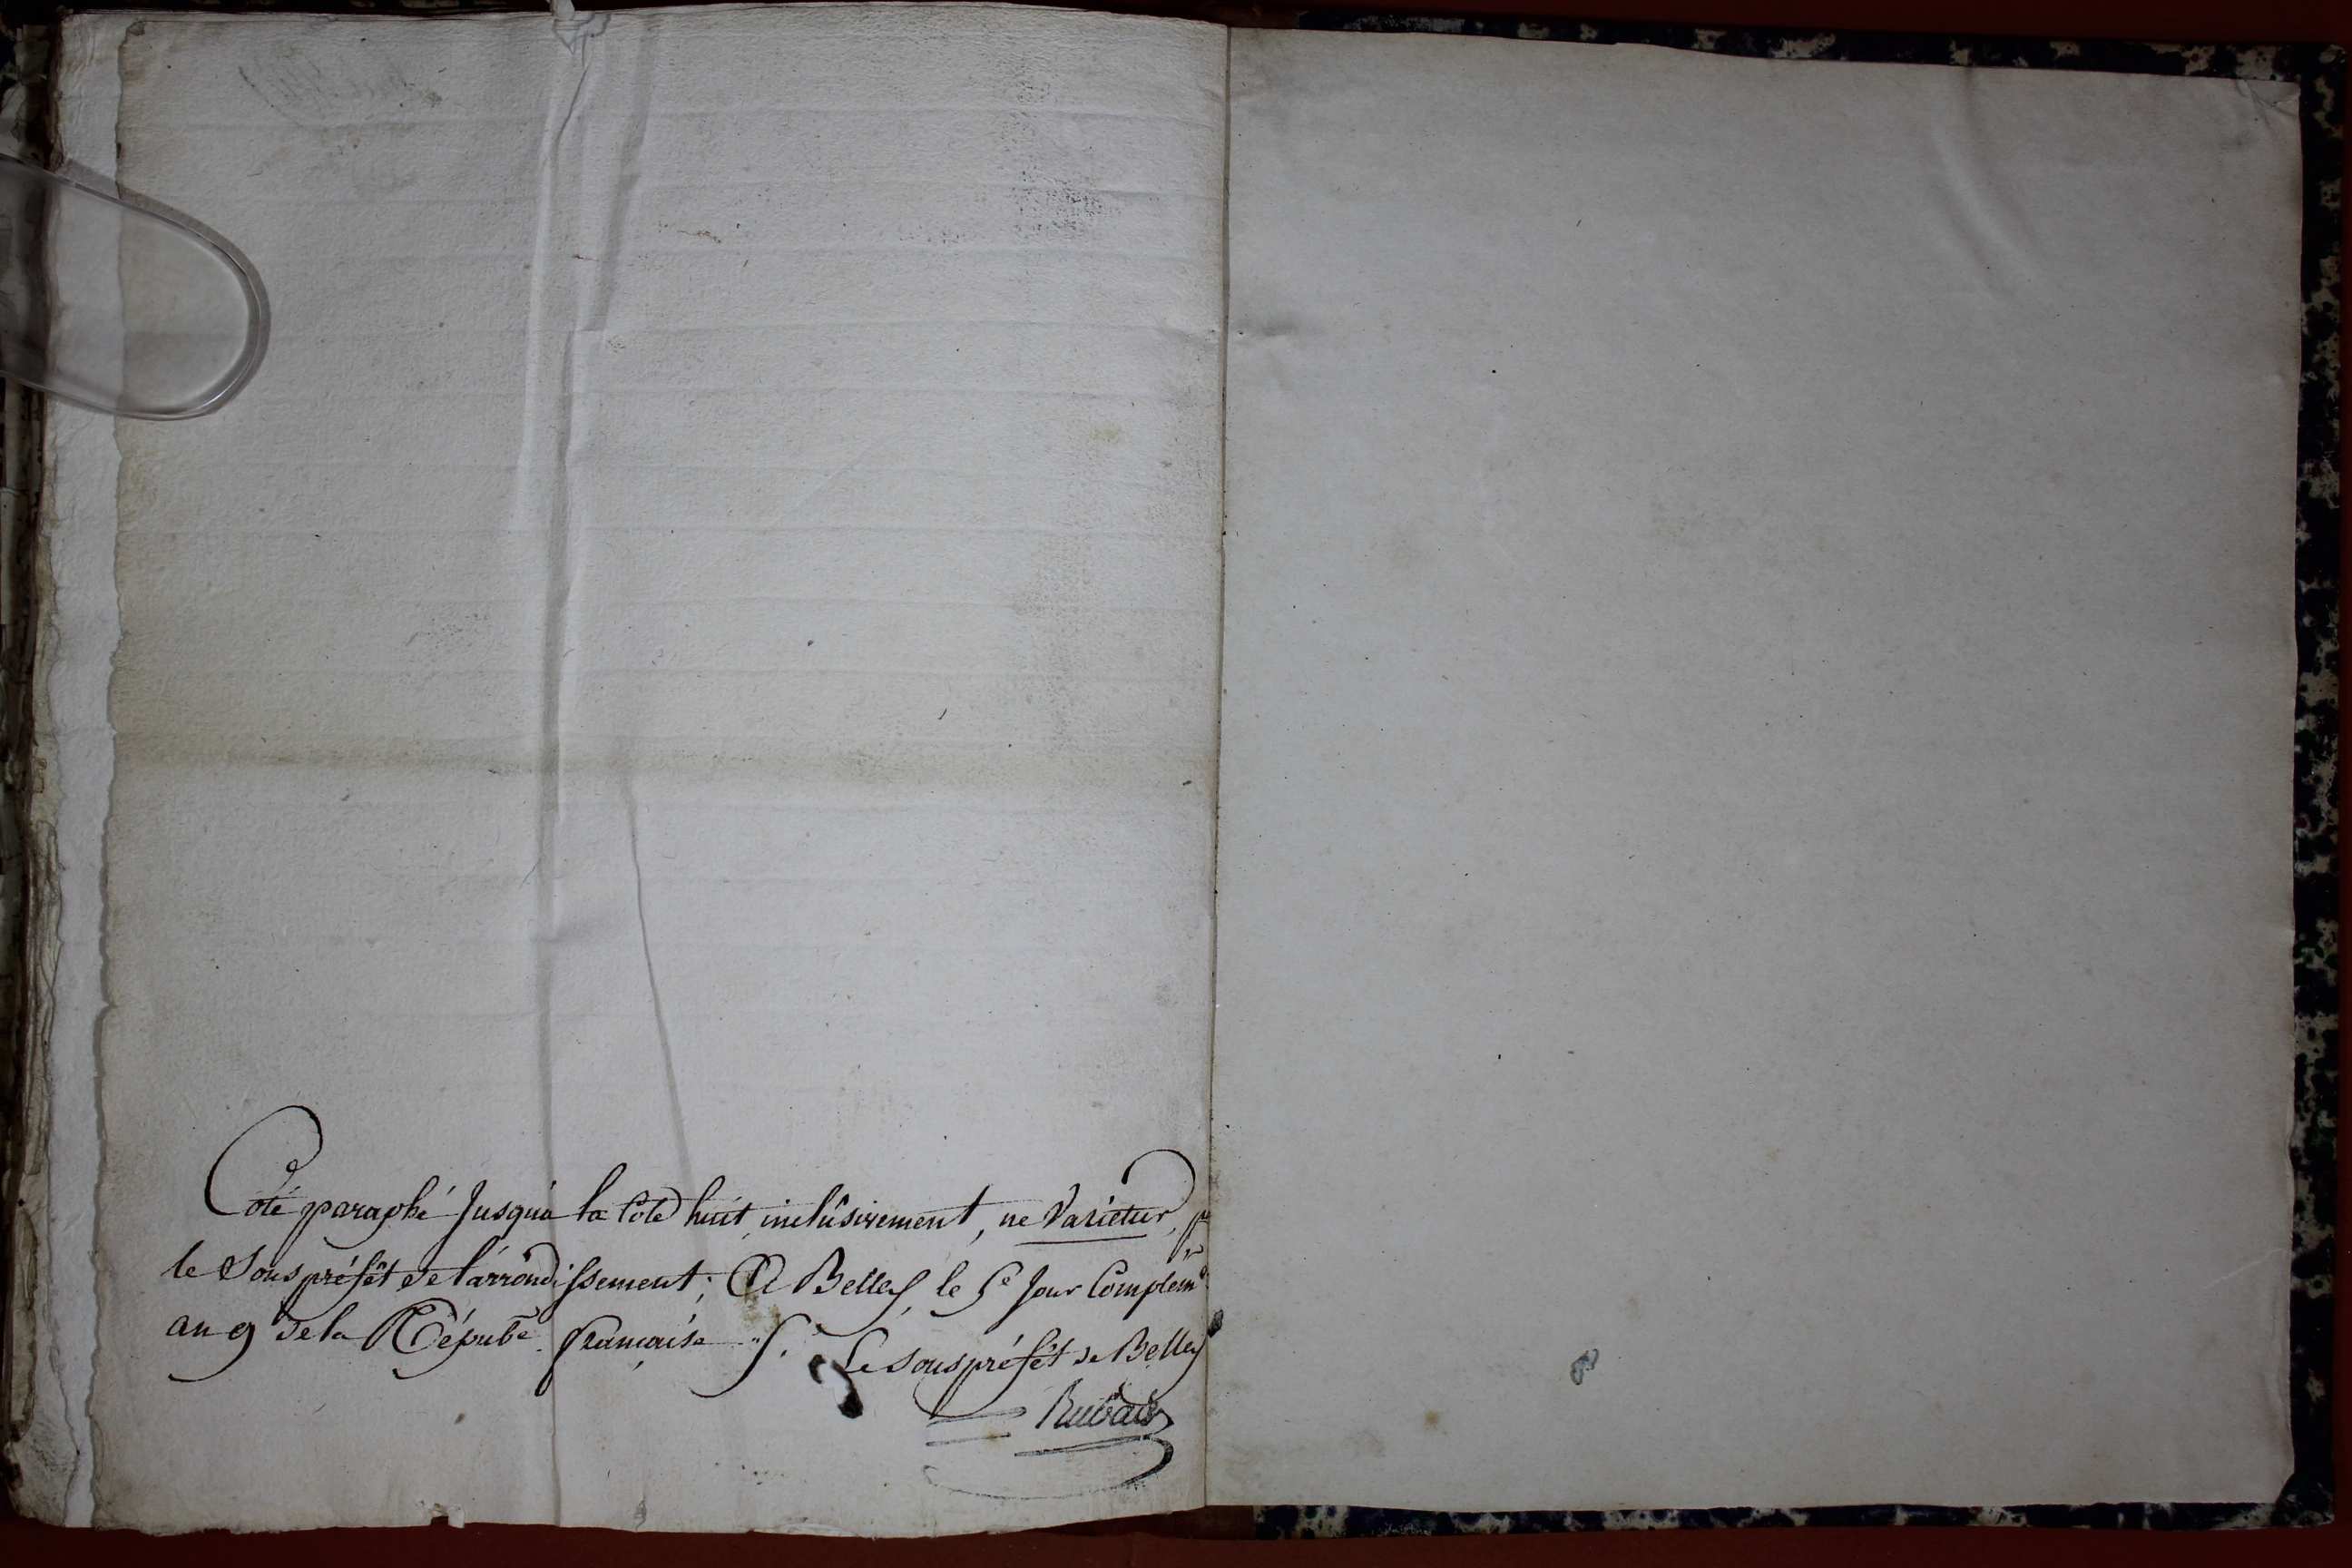 Coté paraphé Jusqu'a la Cote huit, inclûsivement, ne Varietur, pr
le Sous préfêt de l'arrôndissement; A Belley, le 5e Jour Complem.
an 9 de la Répube. française ./.
Le sous préfêt de Belley
Rubat